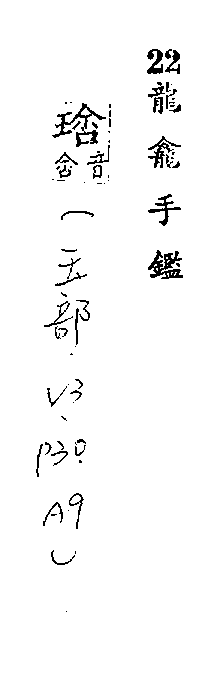 22龍龕手鑑
琀音含(玉部.V3.P30.A9)